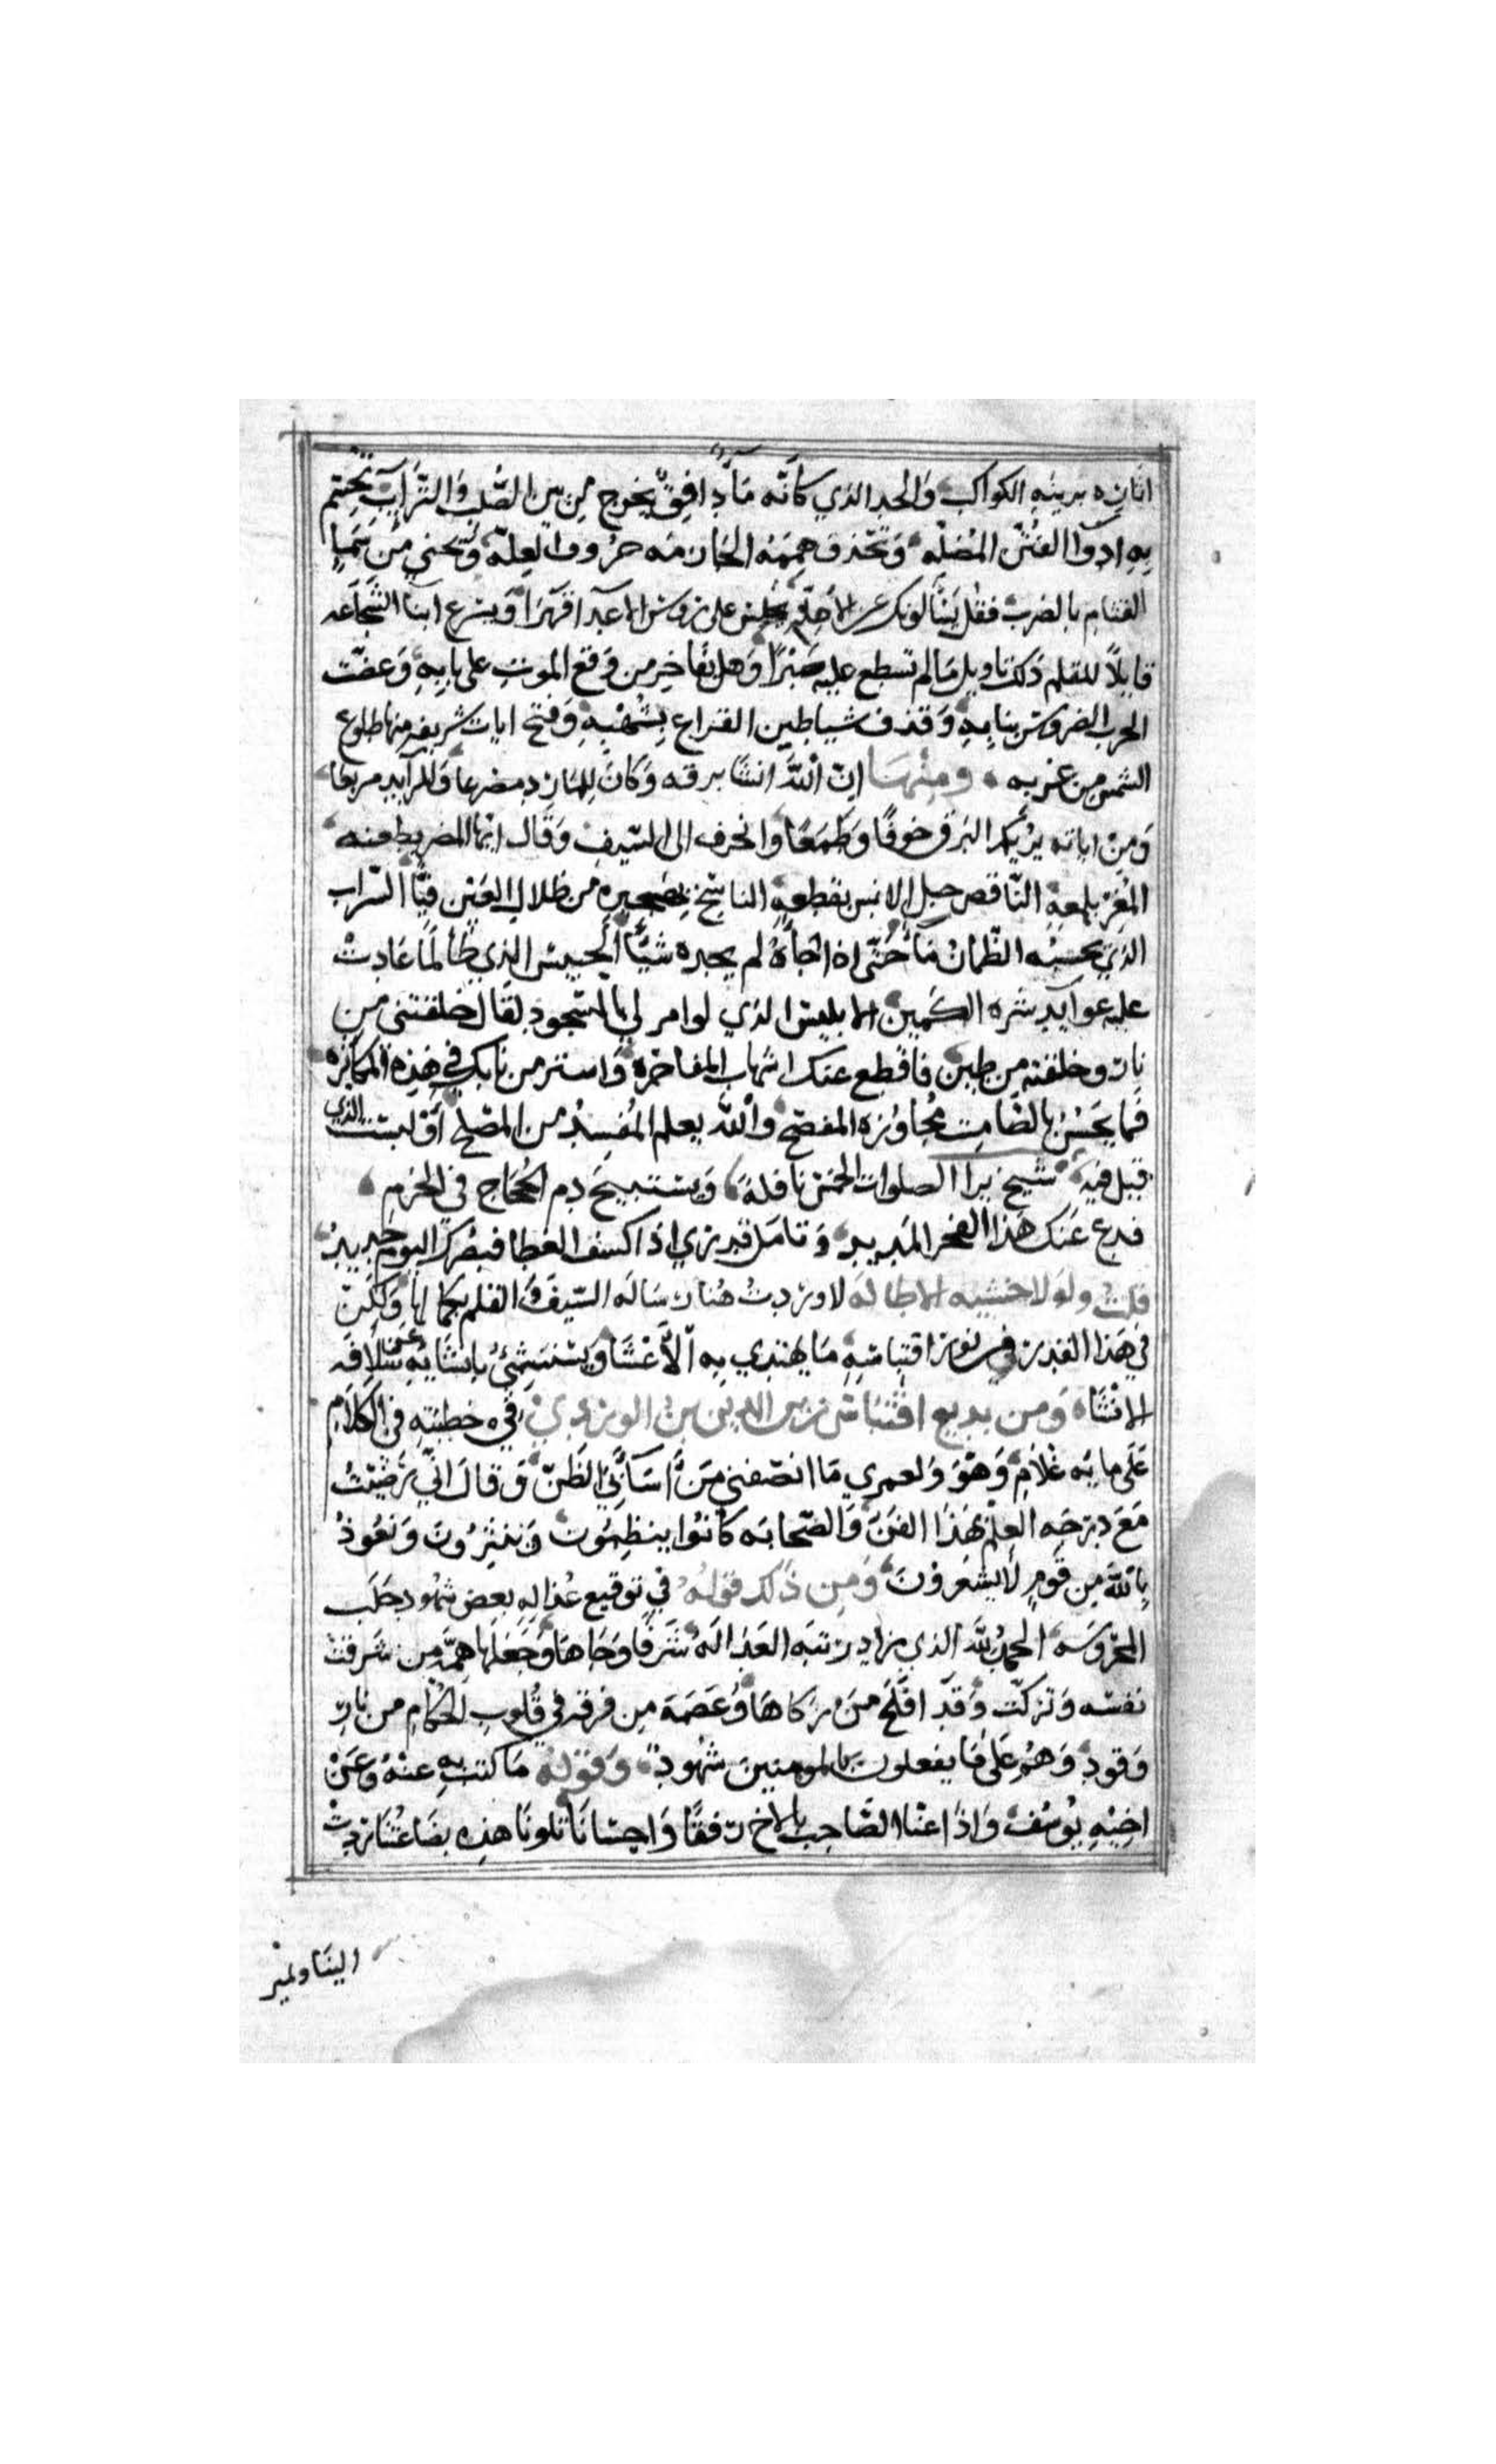 اثاره بزينة الكواكب والحد الذي كانه مآء دافق يخرج من بين الصلب والترآيب تحتم
به ادوآ الفتن المضله وتحذف هممه الجازمه حروف العله وتحنى من سما
القتام بالضرب فقل يسالونك عن الاهله يجلس على روس الاعدآ قهرا ويسرع ابنآ الشجاعه
قايلا للقلم ذلك تاويل مالم تسطع عليه صبرا وهل يفاخر من وقع الموت على بابه وعضت
الحرب الضروس بنابه وقذف شياطين القراع بشهبه وفتح ايات شريفه منها طلوع
الشمس من غربه ومنها ان الله انشا برقه وكان للمارد مصرعا وللرآيد مربعا
ومن اياته يريكم البرق خوفا وطمعا وانحرف الى السيف وقال ايها المضر بطعنه
المغر بلمعه الناقص حبل الانس بقطعه الناسخ بهجيره من ظلال العيش فيئا السراب
الذي يحسبه الظمان مآ حتى اذا جآه لم يجده شيئا الحبيس الذي طالما عادت
عليه عوآيد شره الكمين الابليس الذي لو امر لي بالسجود لقال خلقتني من
نار وخلقته من طين فاقطع عنك اسهاب المفاخره واستر من نابك في هذه المكاثره
فما يحسن بالصامت مجاوزه المفصح والله يعلم المفسد من المصلح او لست الذي
قيل فيه شيخ يرا الصلوات الخمس نافلة ويستبيح دم الحجاج في الحرم
فدع عنك هذا الفخر المديد وتامل قدري اذا كشف الغطا فبصرك اليوم حديد
قلت ولولا خشيه الاطاله لاوردت هنا رساله السيف والقلم بكمالها ولكن
في هذا القدر من نور اقتباسه ما يهتدي به الاعشا ويستنشئ بانشايه عن سلافه
الانشاء ومن بديع اقتباس زين الدين بن الوردي في خطبته في الكلام
على مايه غلام وهو ولعمري ما انصفني من اسآ بي الظن وقال اني رضيت
مع درجه العلم بهذا الفن والصحابه كانوا ينظمون وينثرون ونعوذ
بالله من قوم لا يشعرون ومن ذلك قوله في توقيع عداله بعض شهود حلب
المحروسه الحمد لله الذي زاد رتبه العداله شرفا وجاها وجعلها همه من شرفت
نفسه وتزكت وقد افلح من زكاها وعصمه من فرقه في قلوب الحكام من نار
وقود وهم على ما يفعلون بالمومنين شهود وقوله ما كتب به عنه وعن
اخيه يوسف واذا اعنا الصاحب بالاخ رفقا واحسانا تلونا هذه بضاعتنا ردت
الينا ونمير